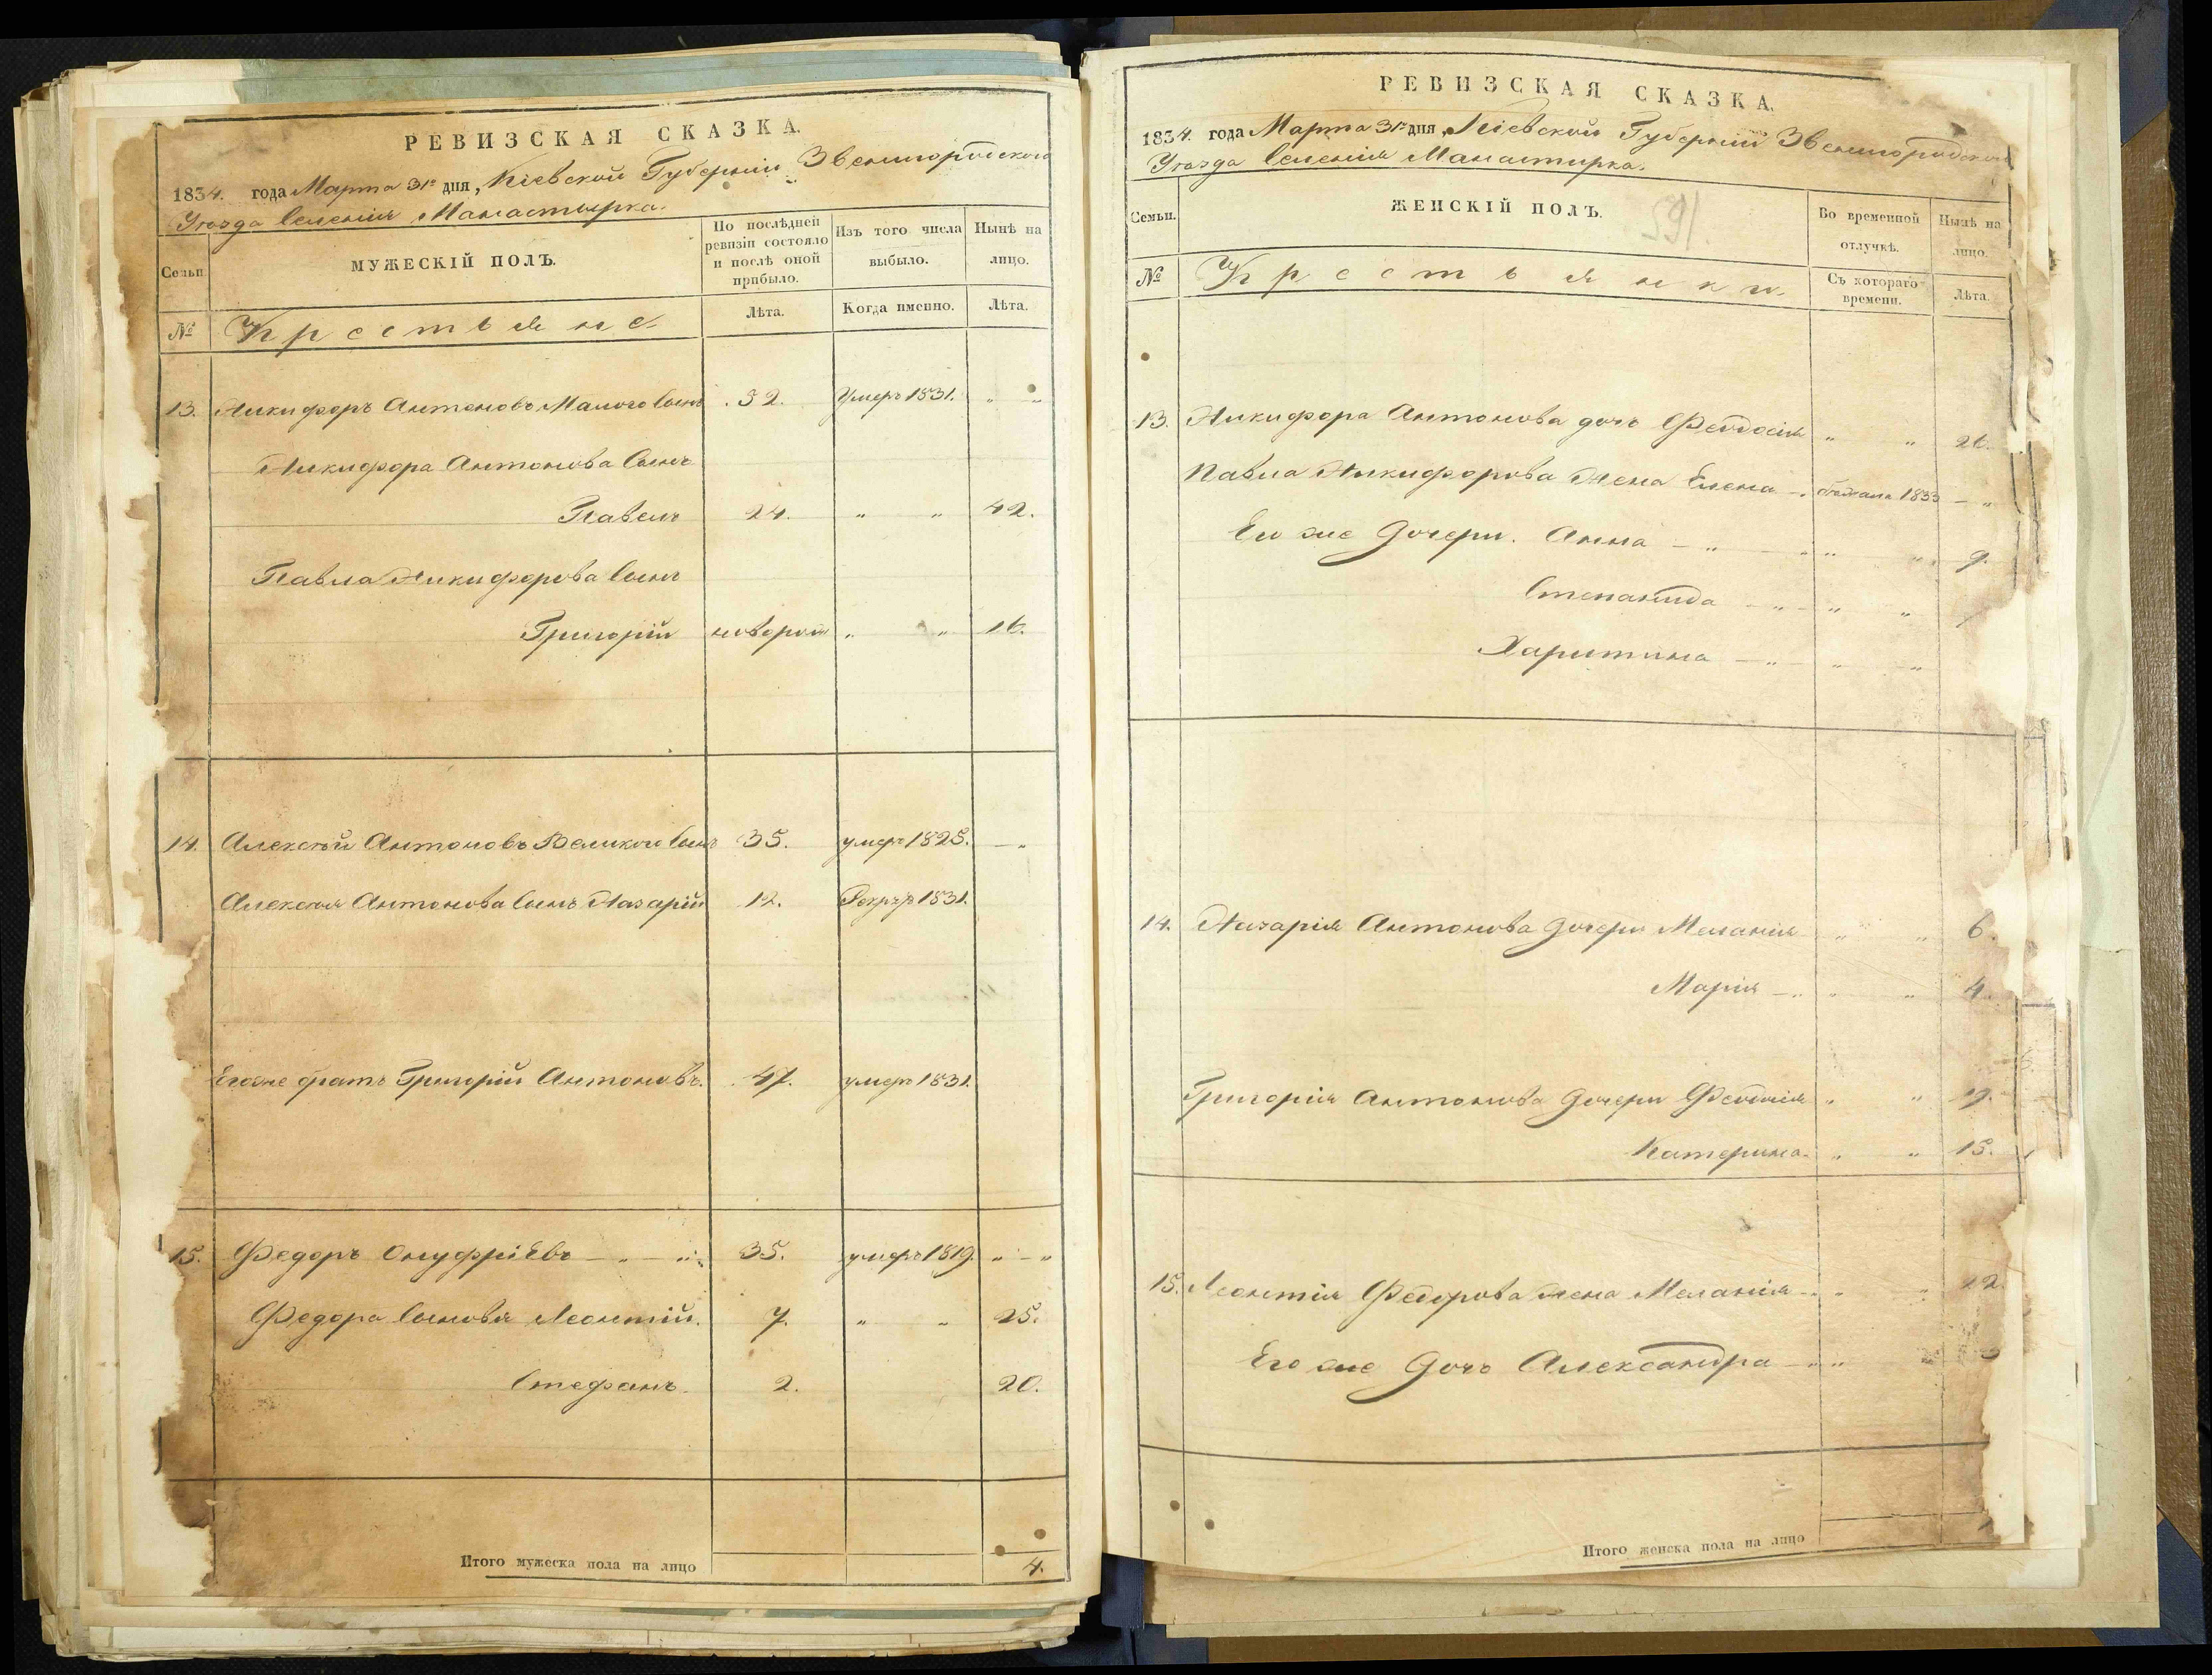 РЕВИЗСКАЯ СКАЗКА.
1834. года Марта 31го дня, Кіевской Губерніи Звенигородского
Уѣзда Селенія Манастырка.
Семьи
МУЖЕСКІЙ ПОЛЪ.
По послѣдней ревизіи состояло и послѣ оной прибыло.
Изъ того числа выбыло.
Нынѣ на лицо.
№
Крестьяне
Лѣта.
Когда именно.
Лѣта.
13. Никифоръ Антоновъ Малого Сынъ 52. Умеръ 1831. „ „
Никифора Антонова Сынъ
Павелъ 24. „ „ 42.
Павла Никифорова Сынъ
Григорій новорож „ „ 16.
14. Алексѣй Антоновъ Великого Сынъ 35. умеръ 1825. — „
Алексѣя Антонова Сынъ Назарій 12. Рекрут 1831.
Егоже братъ Григорій Антоновъ. 47. умеръ 1831.
15. Федоръ Онуфріевъ — „ — „ 35. умеръ 1819. „ — „
Федора Сыновья Леонтій. 7. „ „ 25.
Стефанъ. 2. 20.
Итого мужеска пола на лицо 4.
РЕВИЗСКАЯ СКАЗКА.
1834. года Марта 31го дня, Кіевской Губерніи Звенигородского
Уѣзда Селенія Манастирка.
591.
Семьи.
ЖЕНСКІЙ ПОЛЪ.
Во временной отлучкѣ.
Нынѣ на лицо.
№
Крестьянки.
Съ котораго времени.
Лѣта.
13. Никифора Антонова дочь Феодосія „ „ 26.
Павла Никифорова Жена Елена — бежала 1833 — „
Его же Дочери. Анна — „ — „ „ „ 9.
Степанида — „ — „ „
Харитина — „ — „ — „
14. Назарія Антонова Дочери Меланія „ „ 6.
Марія — „ „ 4.
Григорія Антонова Дочери Феодосія „ „ 19.
Катерина. „ „ 15.
15. Леонтія Федорова жена Меланія — „ „ 22.
Его же Дочь Александра — „ „
Итого женска пола на лицо